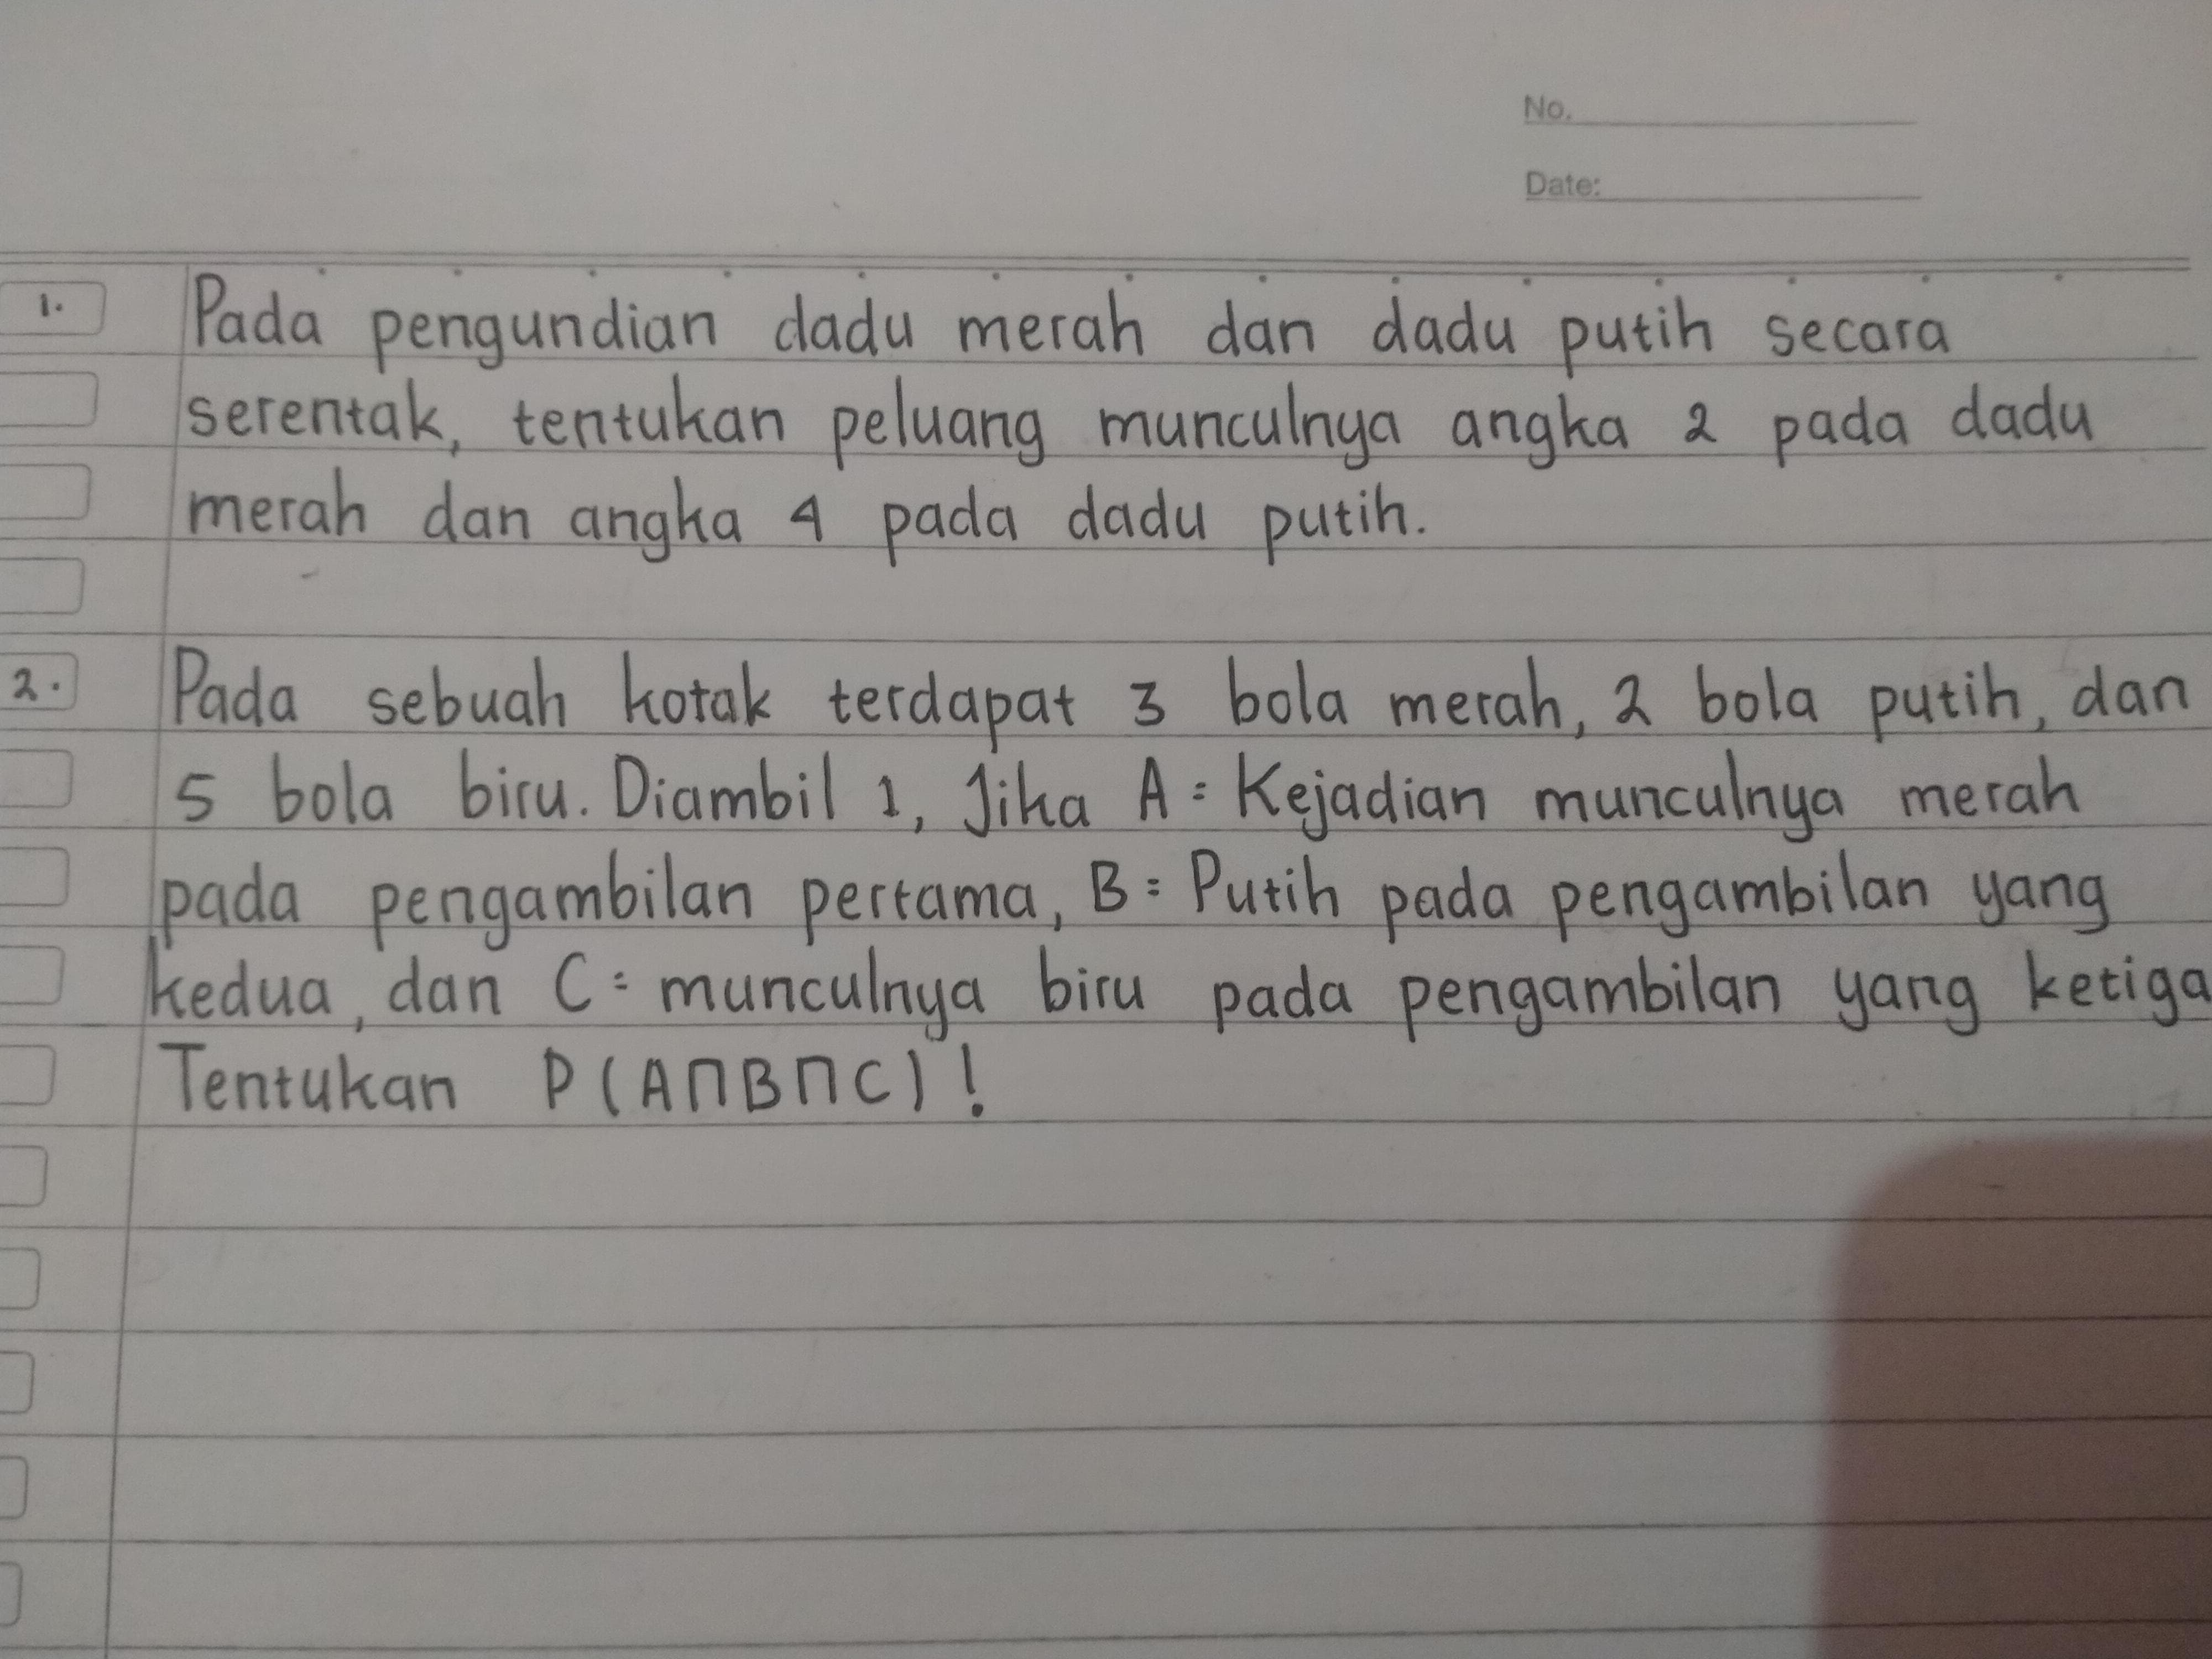 No.
Date:
1. Pada pengundian dadu merah dan dadu putih secara
serentak, tentukan peluang munculnya angka 2 pada dadu
merah dan angka 4 pada dadu putih.
2. Pada sebuah kotak terdapat 3 bola merah, 2 bola putih, dan
5 bola biru. Diambil 1, Jika A = Kejadian munculnya merah
pada pengambilan pertama, B = Putih pada pengambilan yang
kedua, dan C = munculnya biru pada pengambilan yang ketiga
Tentukan P (A∩B∩C) !